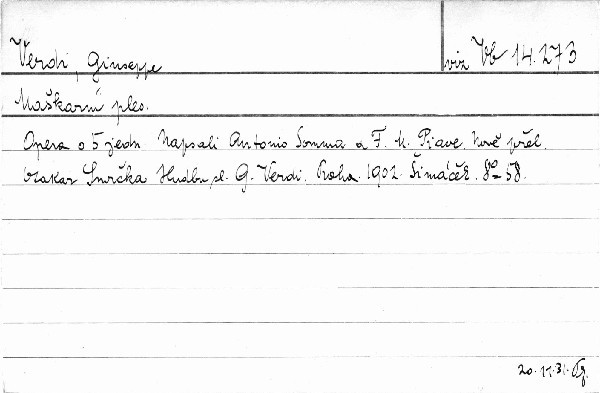 Verdi, Giuseppe
viz Vb 14.273
Maškarní ples.
Opera o 5 jedn. Napsali Antonio Somma a F. M. Piave. Nově přel.
Otakar Smrčka Hudbu sl. G. Verdi. Praha. 1902. Šimáček. 8° 58.
20.11.31.